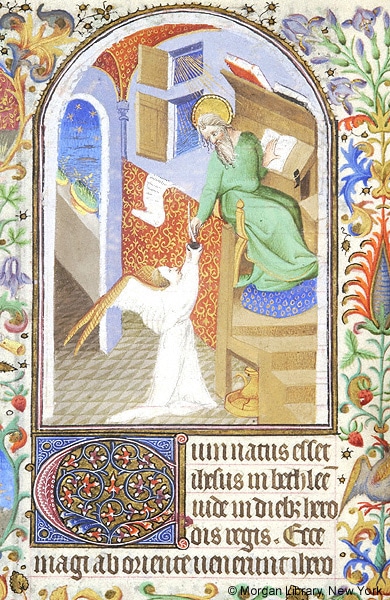 Cum natus esset
ihesus in bethleē
iude in diebꝫ hero
dis regis. Ecce
magi ab oriente uenerunt ihero
© Morgan Library, New York